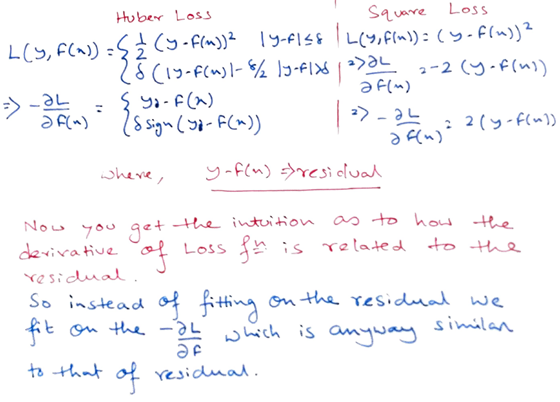 Huber Loss
Square Loss
L(y, f(x)) = { 1/2 (y-f(x))² |y-f|≤δ
δ (|y-f(x)|-δ/2 |y-f|>δ
=> -∂L/∂f(x) = { yi - f(x)
δ sign (yi - f(x))
L(y, f(x)) = (y-f(x))²
=> ∂L/∂f(x) = -2 (y-f(x))
=> -∂L/∂f(x) = 2 (y-f(x))
where, y-f(x) => residual
Now you get the intuition as to how the
derivative of Loss fn is related to the
residual.
So instead of fitting on the residual we
fit on the -∂L/∂f which is anyway similar
to that of residual.